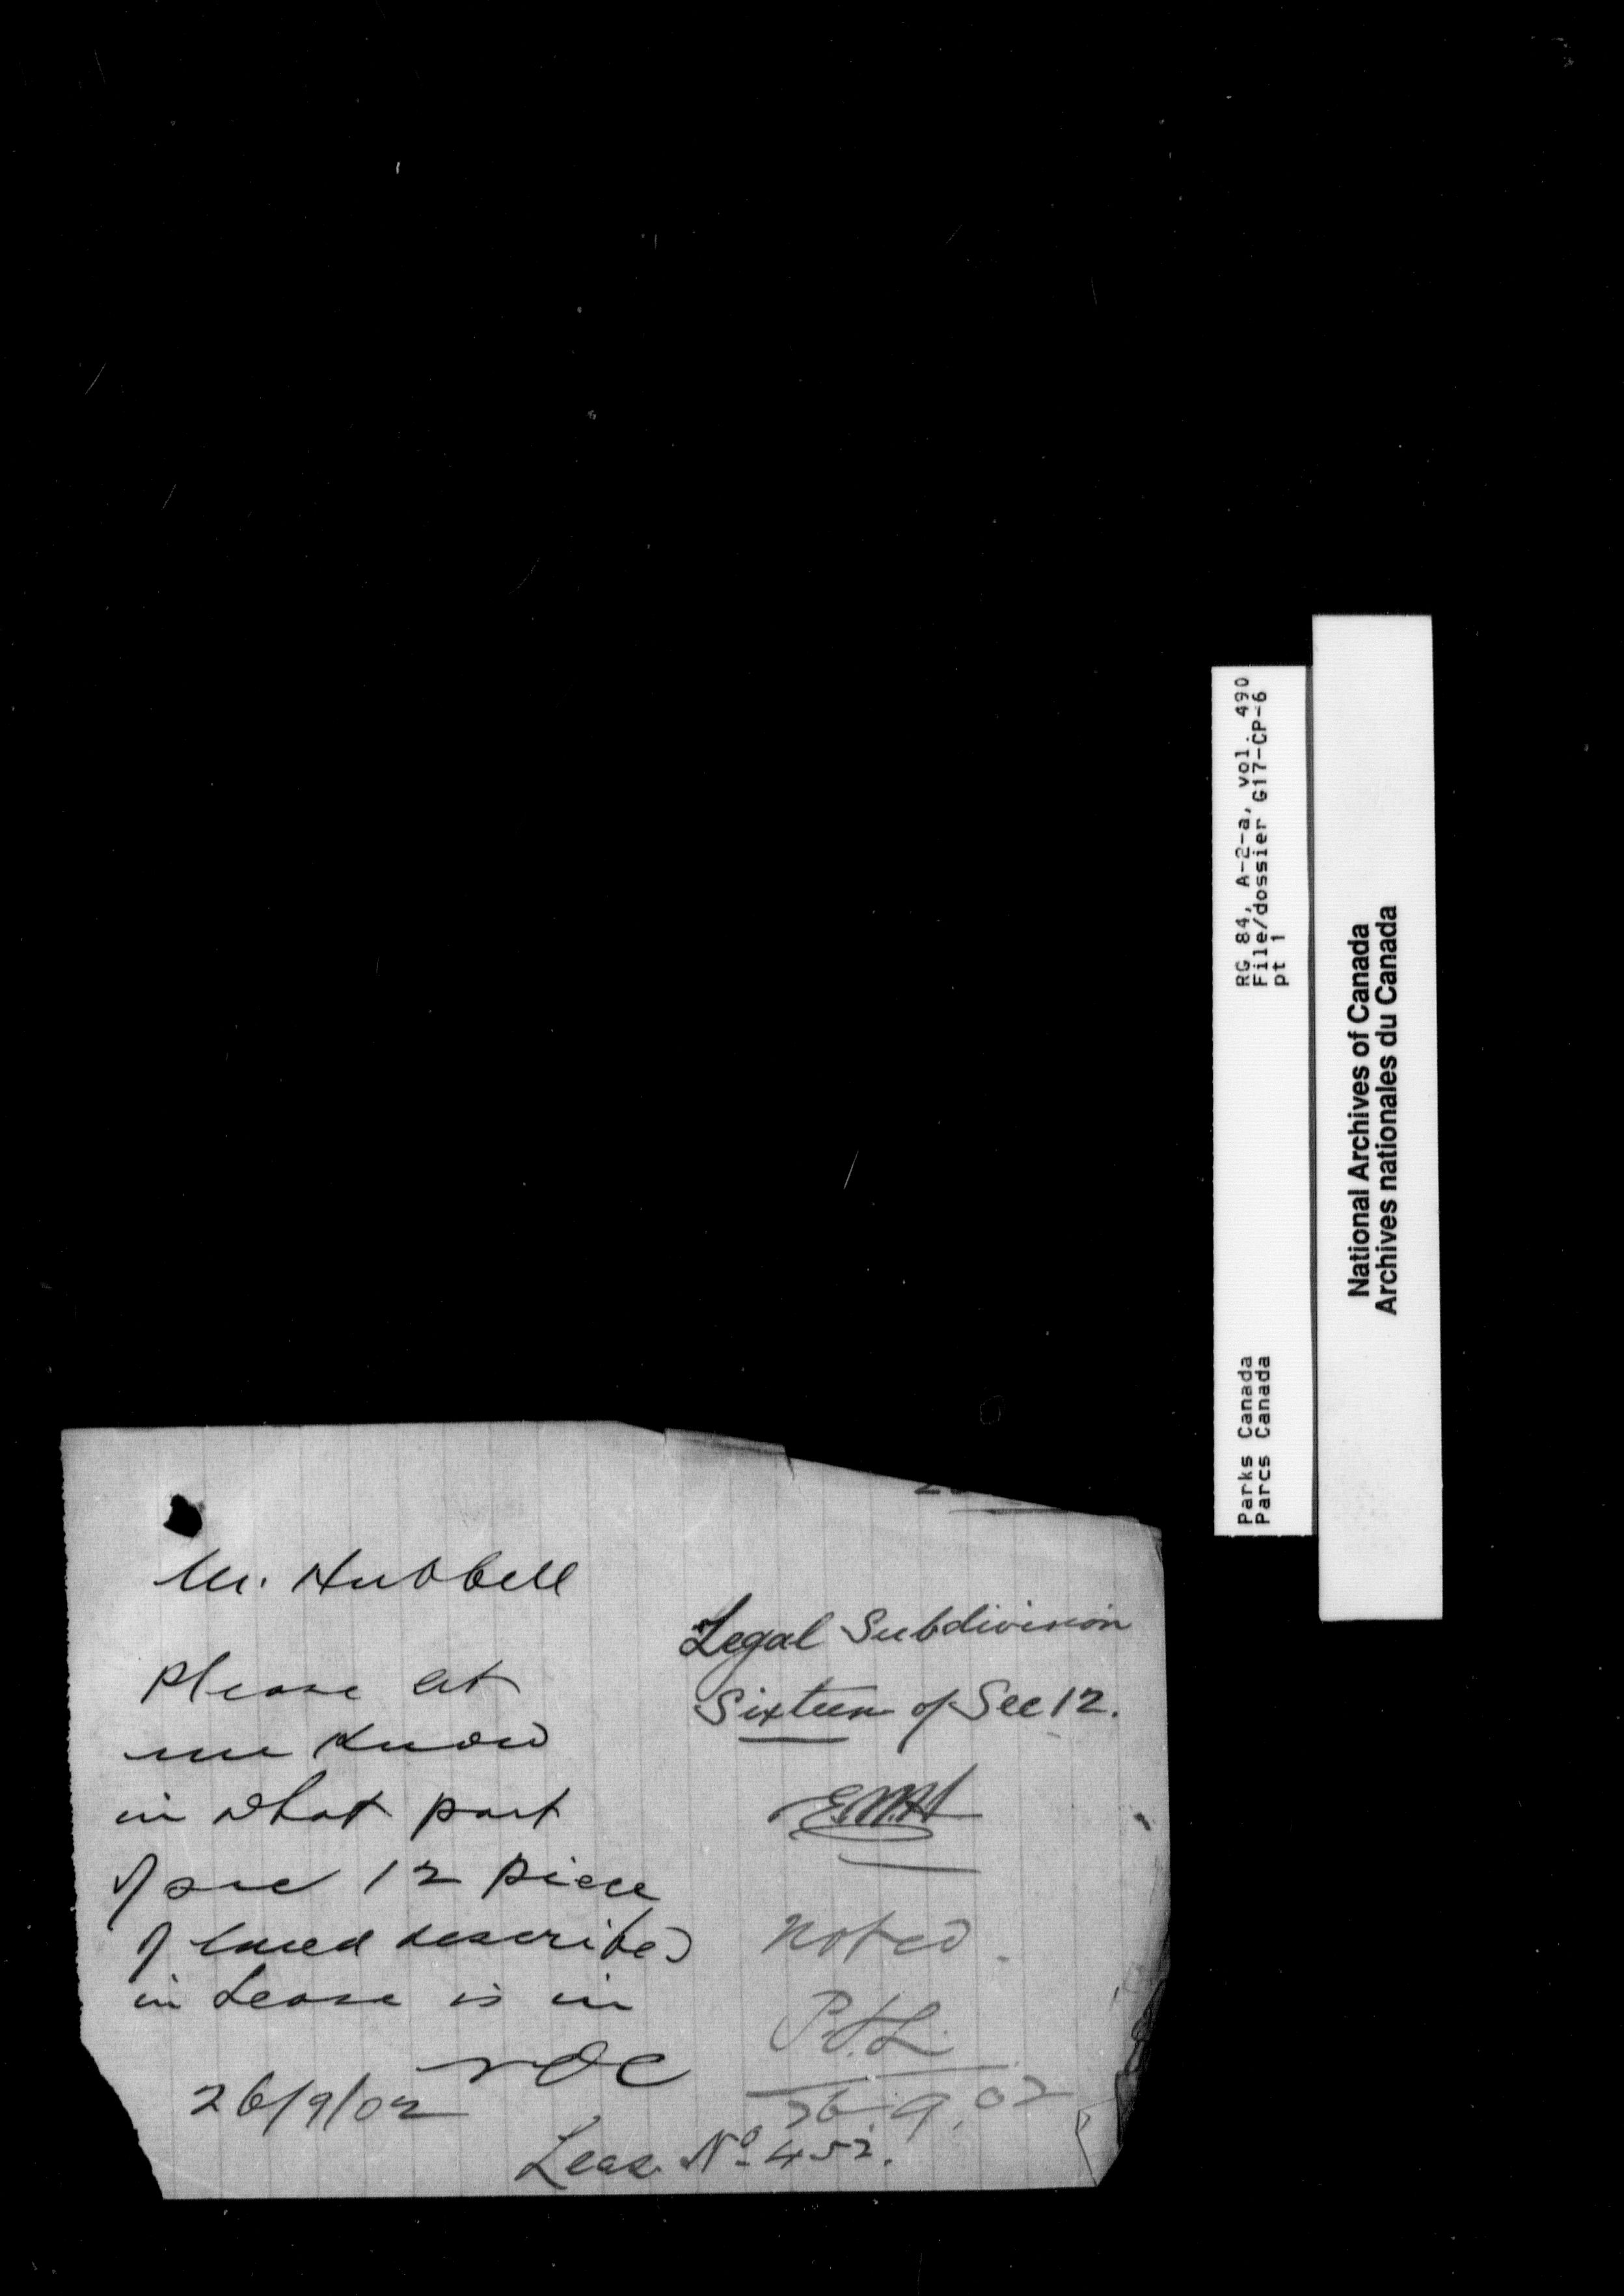 Mr. Hubbell
Please let
me know
in what part
of sec 12 piece
of land described
in Lease is in
26/9/02
Legal Subdivision
Sixteen of Sec 12.
E.W.H
Noted.
26.9.02
Lease No 452.
RG 84, A-2-a, vol. 490
File/dossier G17-CP-6
pt 1
Parks Canada
Parcs Canada
National Archives of Canada
Archives nationales du Canada